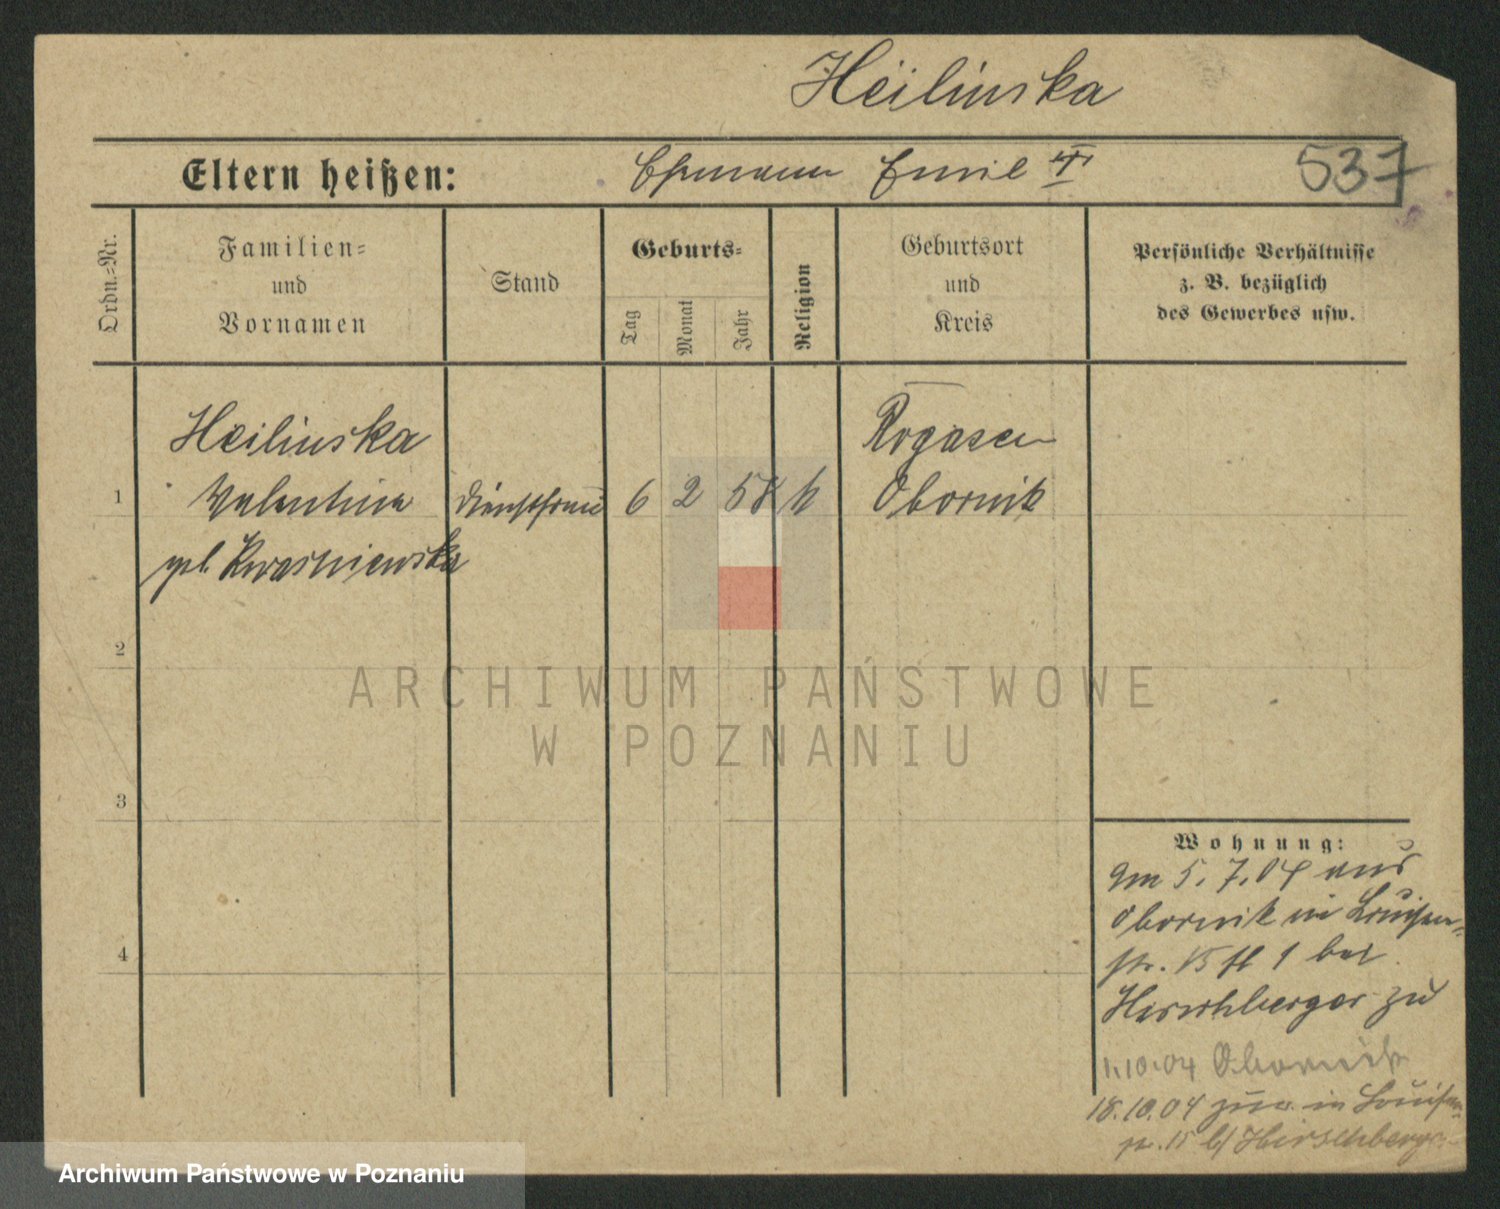 Heilinska
Eltern heißen: Ehmann Emil
537
Ordn.=Nr.
Familien=
und
Vornamen
Stand
Geburts=
Tag
Monat
Jahr
Religion
Geburtsort
und
Kreis
Persönliche Verhältnisse
z. B. bezüglich
des Gewerbes usw.
Heilinska
Valentine
geb. Kwasniewska
1
Dienstfrau
6 2 58 k
Rogasen
Obornik
2
3
4
Wohnung:
Am 5.7.04 aus
Obornik in Louisen=
str. 15 II 1 bei
Hirschberger zu
1.10.04 Obornik
18.10.04 zur. in Louisen=
str. 15 b/ Hirschberger
ARCHIWUM PAŃSTWOWE
W POZNANIU
Archiwum Państwowe w Poznaniu